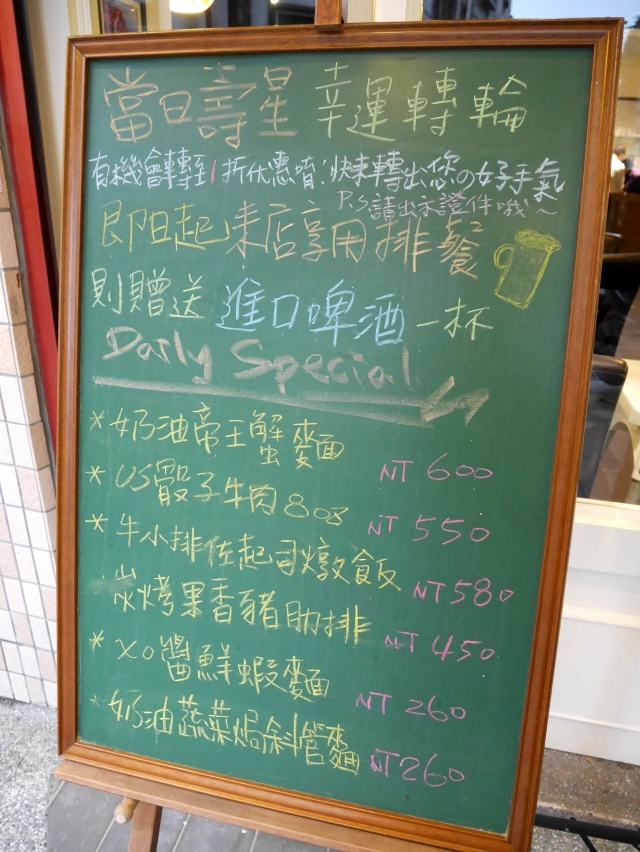 當日壽星 幸運轉輪
有機會轉至1折优惠唷!快來轉出您の好手氣
P.S.請出示證件哦~
即日起 来店享用排餐
則贈送 進口啤酒 一杯
Daily Special
*奶油帝王蟹麵 NT 600
*US骰子牛肉 8oz NT 550
*牛小排佐起司燉飯 NT 580
炭烤果香豬肋排 NT 450
*XO醬鮮蝦麵 NT 260
*奶油蔬菜焗斜管麵 NT 260